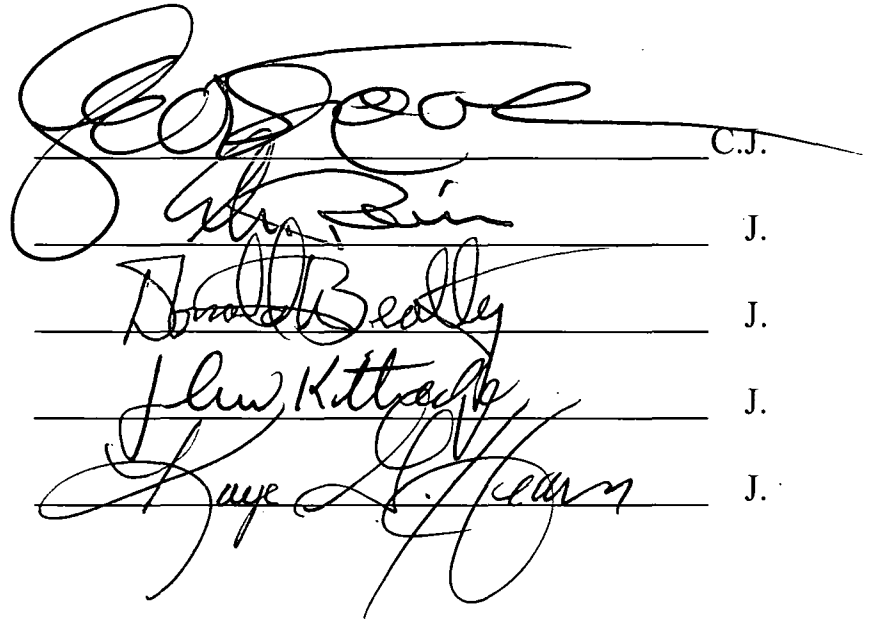 C.J.
J.
Donald Beatty J.
John Kittredge J.
Kaye G. Hearn J.